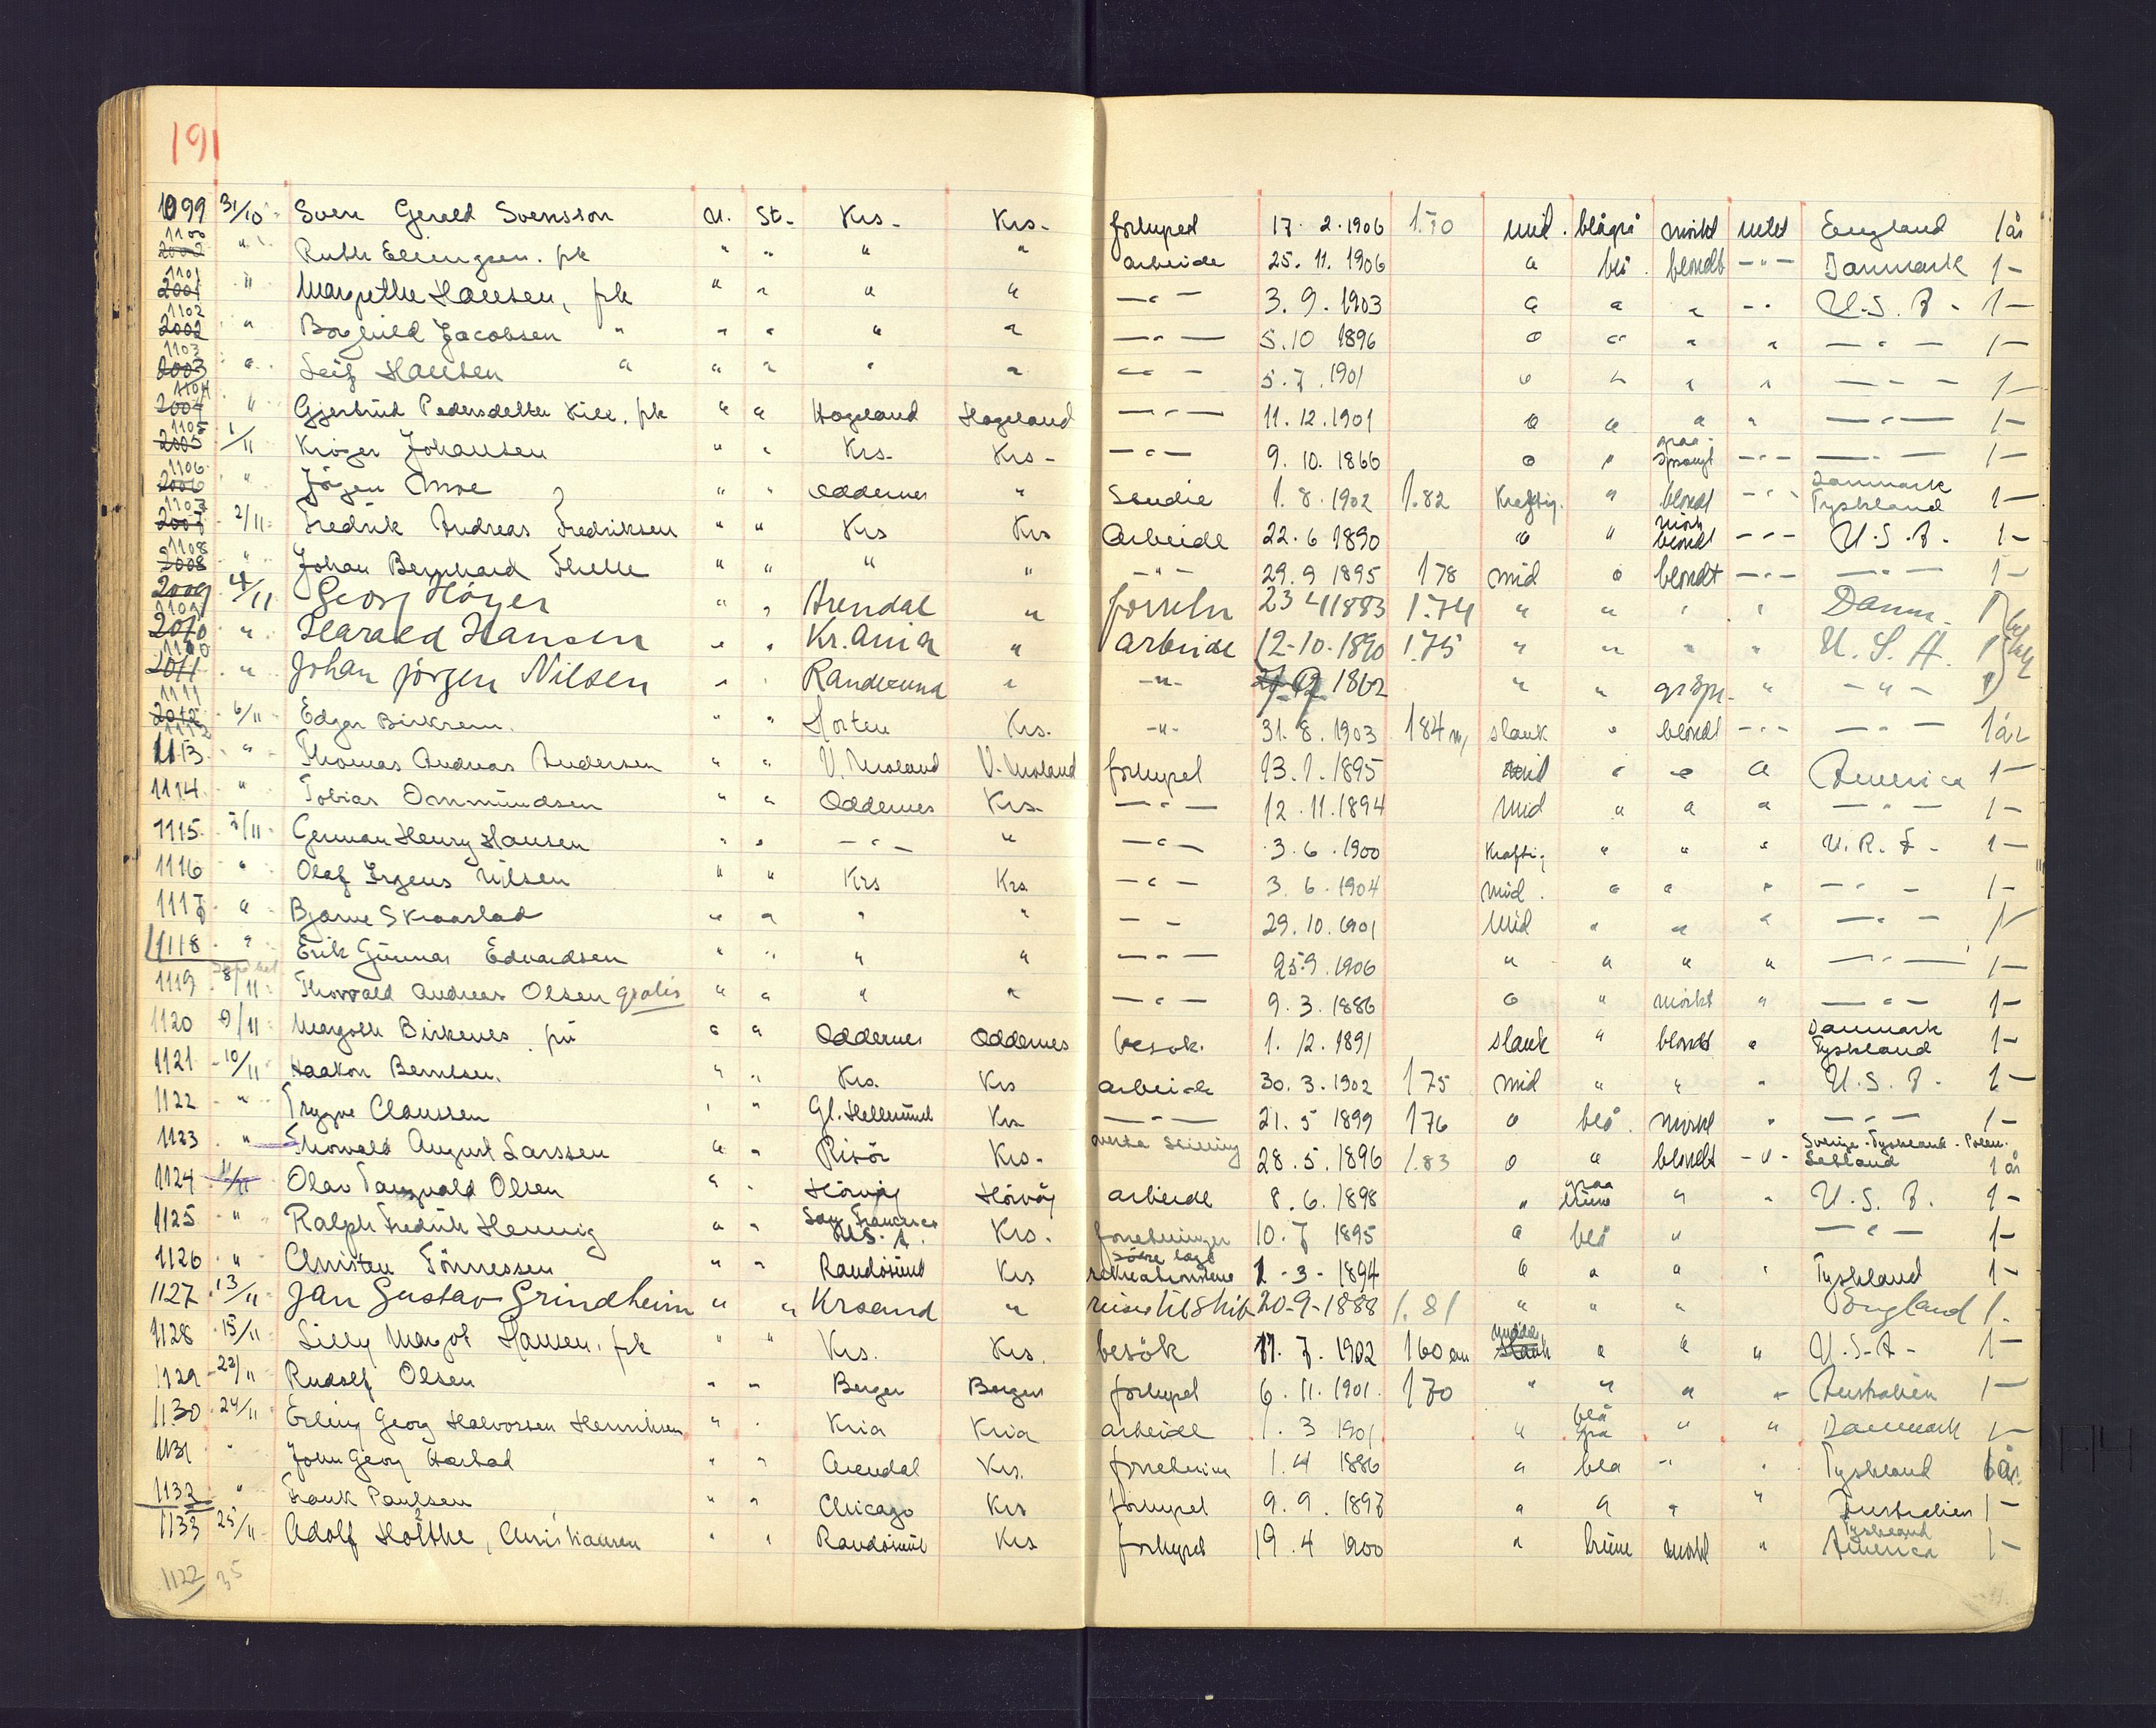 191
1099 31/10 Sven Gerald Svensson U. St. Krs. Krs. forhyret 17.2.1906 1.70 mid. blågrå mörkt mildt England 1 år
1100 2002 " Ruth Ellingsen. frk " " " " arbeide 25.11.1906 " blå. blondt -"- Danmark 1-
1101 2001 " Margrethe Hansen, frk " " " " -"- 3.9.1903 " " " -"- U.S.A. 1-
1102 2002 " Borghild Jacobsen " " " " " -"- 5.10 1896 " " " " -"- 1-
1103 2003 " Leif Hansen " " " " " -"- 5.7.1901 " " " " -"- 1-
1104 2004 " Gjertrud Pedersdatter Kile. frk " " Hageland Hageland -"- 11.12.1901 " " " " -"- 1-
1105 2005 1/11 Kröger Johansen " " Krs. Krs- -"- 9.10.1866 " " graa-sprengt -"- -"- 1-
1106 2006 " Jörgen Moe " " Oddernes " Studie 1.8.1902 1.82 Kraftig. " blondt -"- Danmark Tyskland 1-
1107 2007 2/11 Fredrik Andreas Fredriksen " " Krs Krs Arbeide 22.6 1890 " " mörk blondt -"- U.S.A. 1-
1108 2008 " Johan Bernhard Thelle " " " " -"- 29.9 1895 178 mid " blondt -"- -"- 1-
2009 4/11 Georg Höyer " " Arendal " forretn 23 4 1883 1.74 " " " " Danm. 1
1109 2010 " Harald Hansen " " Kr.ania " arbeide 12-10-1890 1.75 " " " " U.S.A. 1
1110 2011 " Johan Jörgen Nilsen " " Randesund " -"- 1862 " " gråspr. " -"- 1
1111 2012 6/11 Edgar Birkrem. " " Horten Krs. -"- 31.8.1903 184 m, slank " blondt -"- -"- 1 år
1112
1113 " Thomas Andreas Andersen " " V. Moland V. Moland forhyret 13.1.1895 mid " " " America 1-
1114 " Tobias Ommundsen " " Oddernes Krs. -"- 12.11.1894 mid " " " -"- 1-
1115 7/11 German Henry Hansen " " -"- " -"- 3.6.1900 Kraftig " " " U.S.A. 1-
1116 " Olaf Irgens Nilsen " " Krs Krs -"- 3.6.1904 mid. " " " -"- 1-
1117 " Bjarne Skraastad " " " " - - 29.10.1901 mid " " " -"- 1-
1118 " Erik Gunnar Edvardsen " " " " -"- 25.9.1906 " " " " -"- 1-
1119 8/11 Thorvald Andreas Olsen gratis " " " " -"- 9.3.1886 " " mörkt " -"- 1-
1120 9/11 Margoth Birkenes fru " " Oddernes Oddernes besök. 1.12.1891 slank " blondt " Danmark Tyskland 1-
1121 10/11 Haakon Berntsen. " " Krs. Krs arbeide 30.3.1902 175 mid " " " U.S.A. 1-
1122 " Trygve Claussen " " Gl. Hellesund Krs -"- 21.5 1899 176 " blå. mörkt " -"- 1-
1123 " Thorvald August Larssen " " Risör Krs. stilling 28.5.1896 1.83 " " blondt -"- Sverige-Tyskland-Polen. Letland 1 år
1124 11/11 Olav Tangvald Olsen " " Hövåg Hövåg arbeide 8.6.1898 " graa brune " " U.S.A. 1-
1125 " Ralph Fredrik Hennig " " San Francisco U.S.A. Krs. forretninger 10.7 1895 " blå " -"- 1-
1126 " Christen Tönnessen " " Randösund Krs 1-3-1894 " " " " Tyskland 1-
1127 13/11 Jan Gustav Grindheim " " Krsand " reise til Skib 20-9-1888 1.81 " " " England 1.
1128 15/11 Lilly Margot Hansen. frk " " Krs. Krs. besök 11.7.1902 160 cm middel slank " " " U.S.A- 1-
1129 22/11 Rudolf Olsen " " Bergen Bergen forhyret 6.11.1901. 170 " " " " Australien 1-
1130 24/11 Erling Georg Halvorsen Henriksen " " Kria Kria arbeide 1.3 1901 " blå grå " " Danmark 1-
1131 " John Georg Harstad " " Arendal Krs. forretning 1.4 1886 " blå " " Tyskland 1 år.
1132 " Frank Paulsen " " Chicago Krs forhyret 9.9.1897 " " " " Australien 1-
1133 25/11 Adolf Holthe, Christiansen " " Randösund Krs forhyret 19.4 1900 " brune mörkt " Tyskland America 1-
1122 35